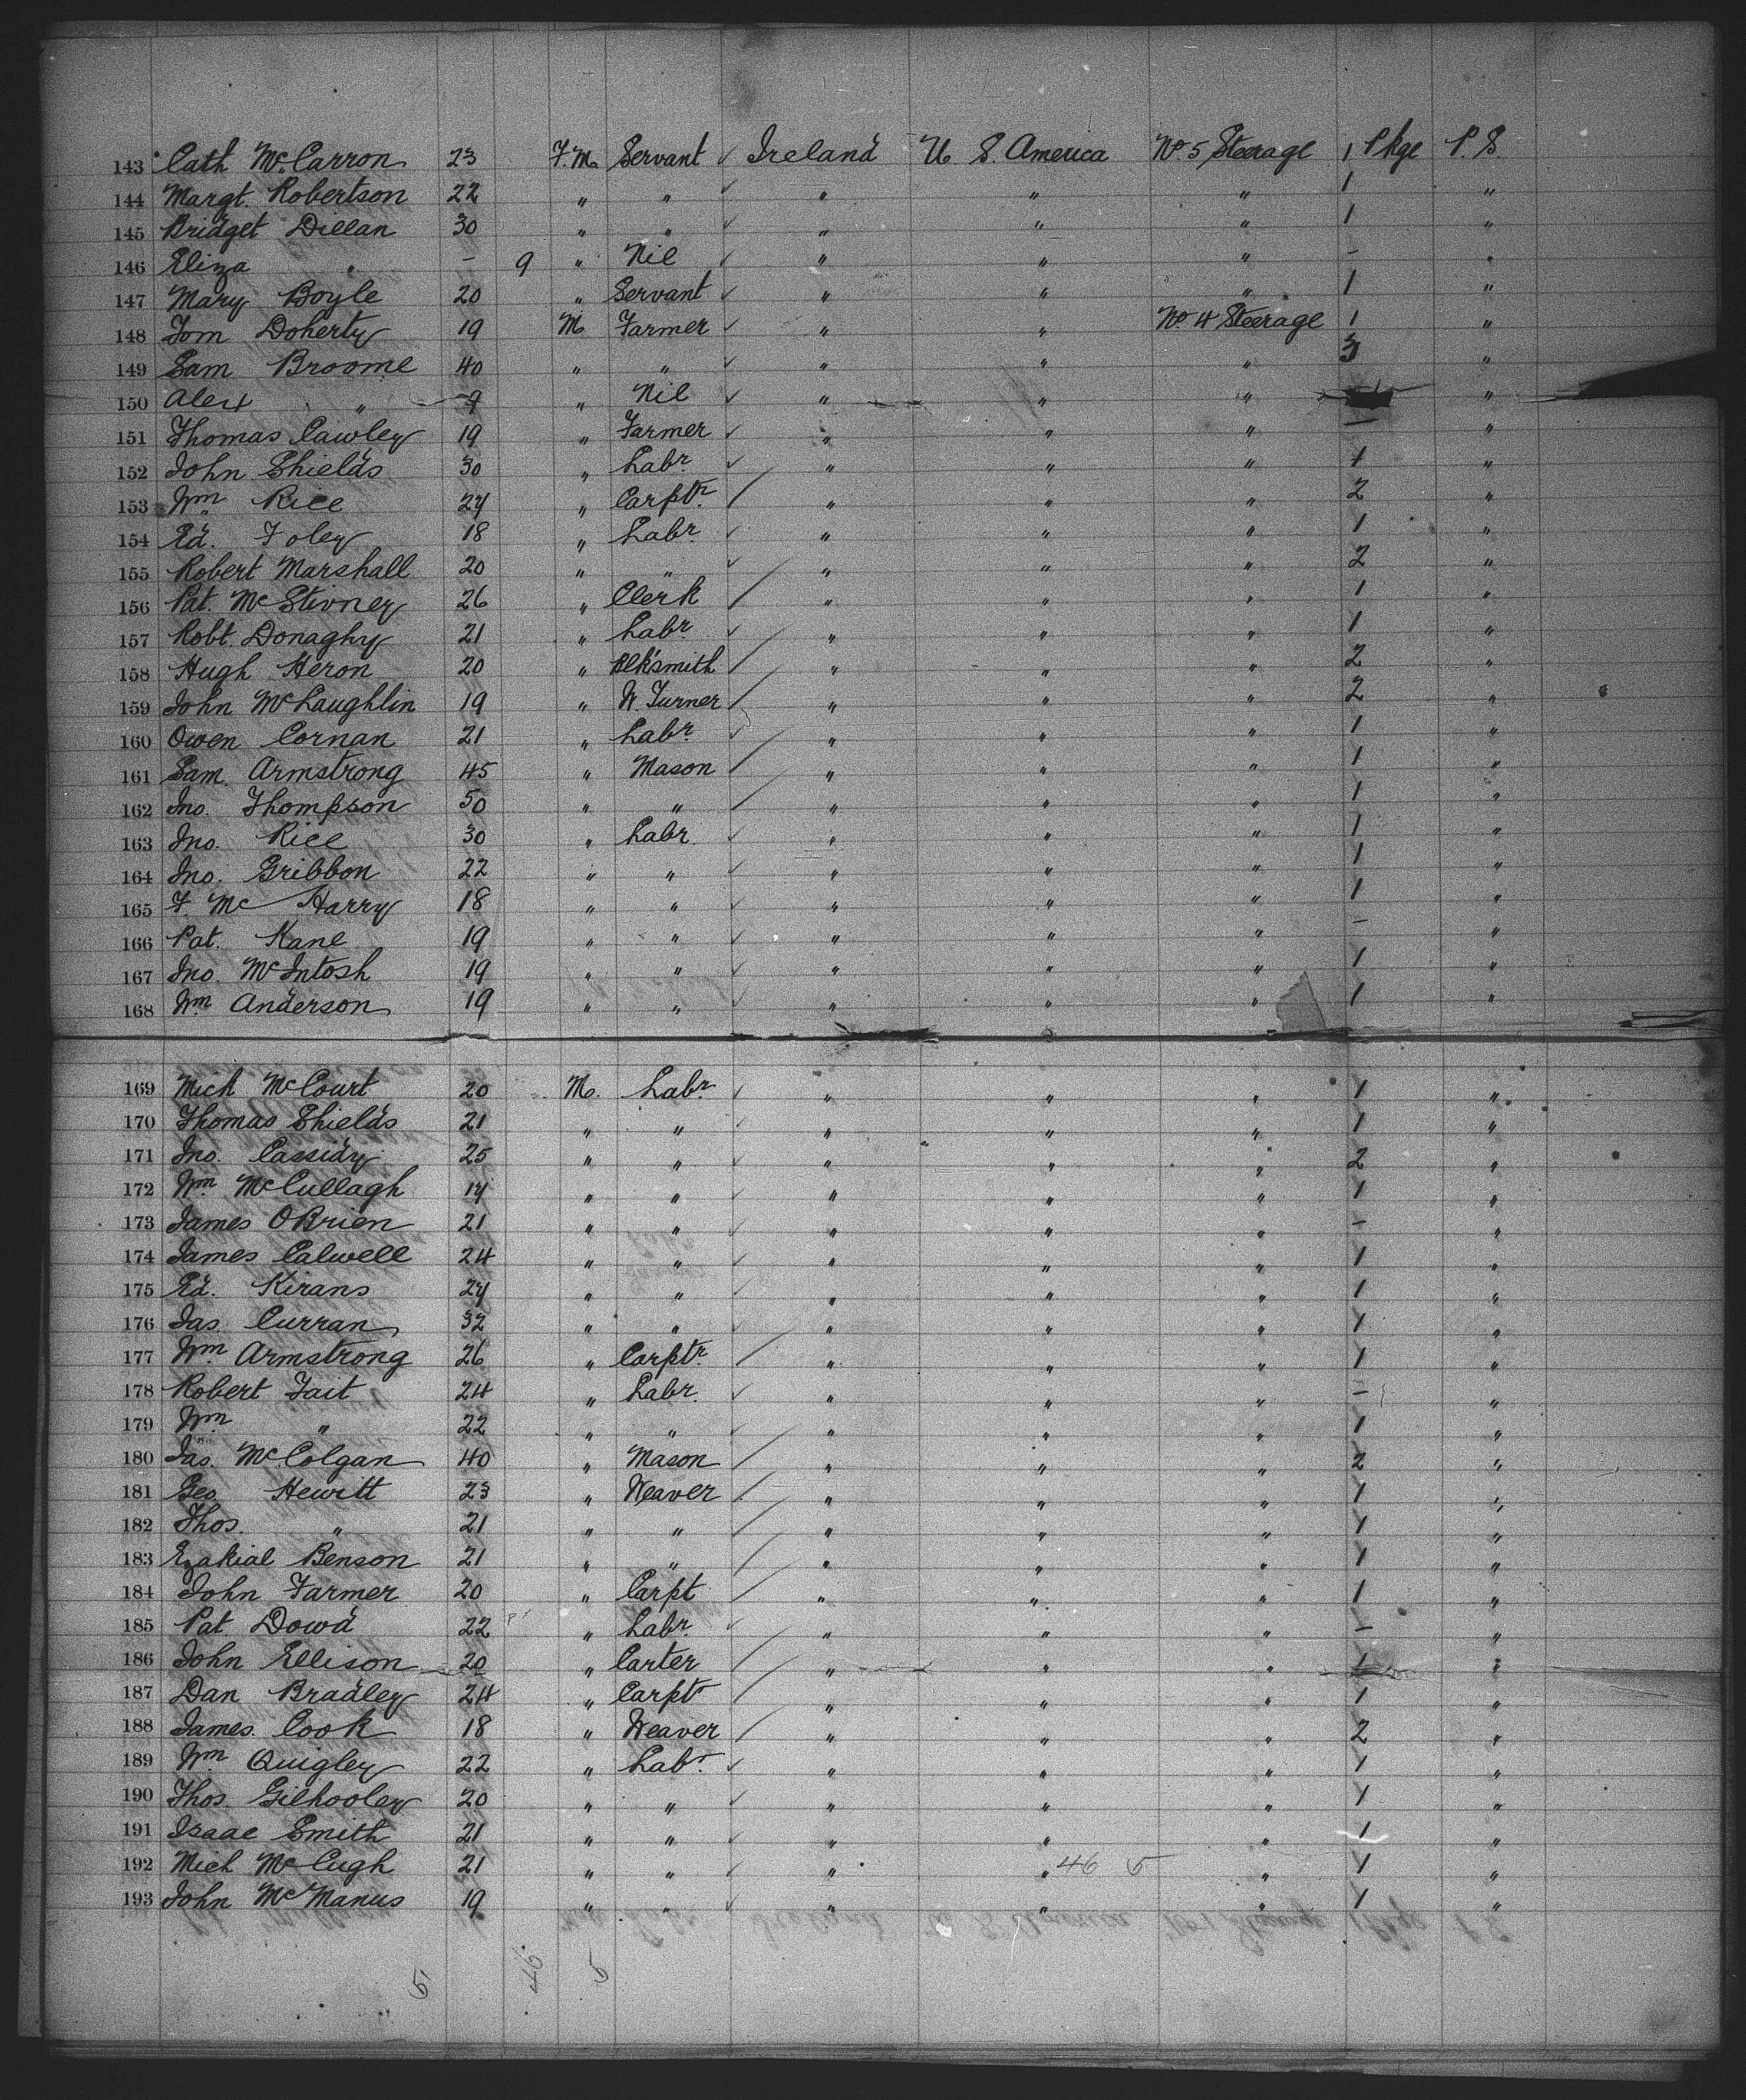 143 Cath McCarron 23 F.M. Servant ✓ Ireland U. S. America No 5 Steerage 1 Pkge P.S.
144 Margt. Robertson 22 " " ✓ " " " 1 "
145 Bridget Dillan 30 " " ✓ " " " 1 "
146 Eliza " – 9 " Nil ✓ " " " – "
147 Mary Boyle 20 " Servant ✓ " " " 1 "
148 Tom Doherty 19 M Farmer ✓ " " No 4 Steerage 1 "
149 Sam Broome 40 " " ✓ " " " 3 "
150 Alex " 9 " Nil ✓ " " " "
151 Thomas Cawley 19 " Farmer ✓ " " " – "
152 John Shields 30 " Labr. ✓ " " " 1 "
153 Wm Rice 24 " Carptr. / " " " 2 "
154 Ed. Foley 18 " Labr. ✓ " " " 1 "
155 Robert Marshall 20 " " ✓ " " " 2 "
156 Pat. McStivney 26 " Clerk / " " " 1 "
157 Robt. Donaghy 21 " Labr ✓ " " " 1 "
158 Hugh Heron 20 " Blk'smith / " " " 2 "
159 John McLaughlin 19 " W. Turner / " " " 2 "
160 Owen Cornan 21 " Labr. ✓ " " " 1 "
161 Sam. Armstrong 45 " Mason / " " " 1 "
162 Jno. Thompson 50 " " / " " " 1 "
163 Jno. Rice 30 " Labr. ✓ " " " 1 "
164 Jno. Gribbon 22 " " ✓ " " " 1 "
165 F. Mc Harry 18 " " ✓ " " " 1 "
166 Pat. Kane 19 " " ✓ " " " – "
167 Jno. McIntosh 19 " " ✓ " " " 1 "
168 Wm Anderson 19 " " ✓ " " " 1 "
169 Mich McCourt 20 M. Labr. ✓ " " " 1 "
170 Thomas Shields 21 " " ✓ " " " 1 "
171 Jno. Cassidy 25 " " ✓ " " " 2 "
172 Wm McCullagh " " ✓ " " " 1 "
173 James OBrien 21 " " ✓ " " " – "
174 James Calwell 24 " " ✓ " " " 1 "
175 Ed. Kirans 24 " " ✓ " " " 1 "
176 Jas. Curran 32 " " ✓ " " " 1 "
177 Wm Armstrong 26 " Carptr. / " " " 1 "
178 Robert Tait 24 " Labr. ✓ " " " – "
179 Wm " 22 " " ✓ " " " 1 "
180 Jas. McColgan 40 " Mason / " " " 2 "
181 Geo. Hewitt 23 " Weaver / " " " 1 "
182 Thos. " 21 " " / " " " 1 "
183 Ezakial Benson 21 " " / " " " 1 "
184 John Farmer 20 " Carpt / " " " 1 "
185 Pat Dowd 22 " Labr. ✓ " " " – "
186 John Ellison 20 " Carter / " " " 1 "
187 Dan Bradley 24 " Carptr / " " " 1 "
188 James. Cook 18 " Weaver / " " " 2 "
189 Wm Quigley 22 " Labr. ✓ " " " 1 "
190 Thos. Gilhooley 20 " " ✓ " " " 1 "
191 Isaac Smith 21 " " ✓ " " " 1 "
192 Mich McCugh 21 " " ✓ " " 46 5 " 1 "
193 John McManus 19 " " ✓ " " " 1 "
5 46 5